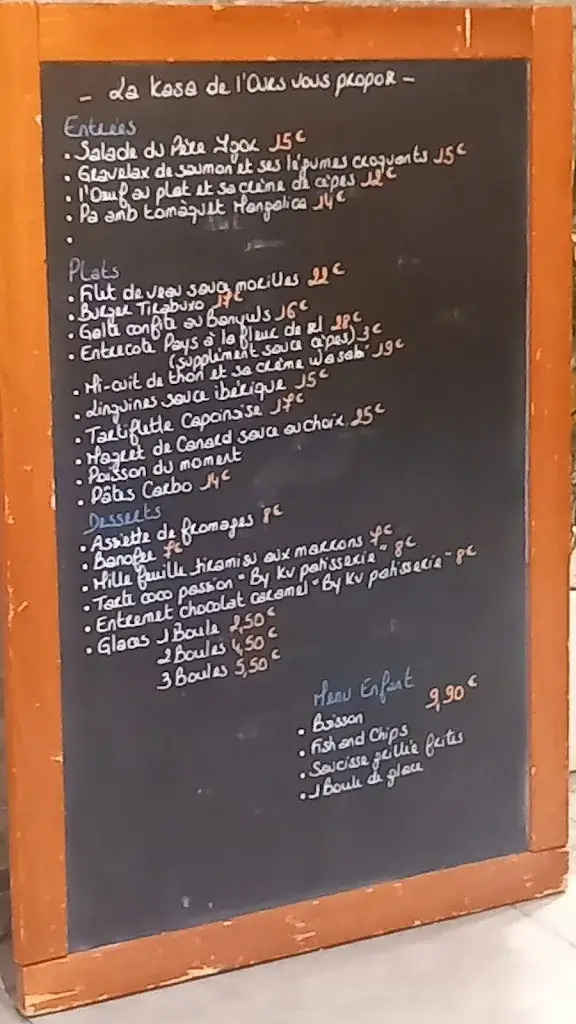 - La Kasa de l'Ours vous propor -
Entrées
• Salade du Père Ygor 15€
• Gravelax de saumon et ses légumes croquants 15€
• l'Oeuf au plat et sa crème de cèpes 12€
• Pa amb tomàquet Mangalica 14€
•
Plats
• Filet de veau sauce morilles 22€
• Burger Tiraburo 17€
• Galta confite au Banyuls 16€
• Entrecote Pays à la fleur de sel 28€
(supplément sauce cèpes) 3€
• Mi-cuit de thon et sa crème wasabi 19€
• Linguines sauce ibérique 15€
• Tartiflette Capcinoise 17€
• Magret de Canard sauce au choix 25€
• Poisson du moment
• Pâtes Carbo 14€
Desserts
• Assiette de fromages 8€
• Banofee 7€
• Mille feuille tiramisu aux marrons 7€
• Tarte coco passion "By KV patisserie" 8€
• Entremet chocolat caramel "By KV patisserie" 8€
• Glaces 1 Boule 2,50€
2 Boules 4,50€
3 Boules 5,50€
Menu Enfant
9,90€
• Boisson
• Fish and Chips
• Saucisse grillée frites
• 1 Boule de glace